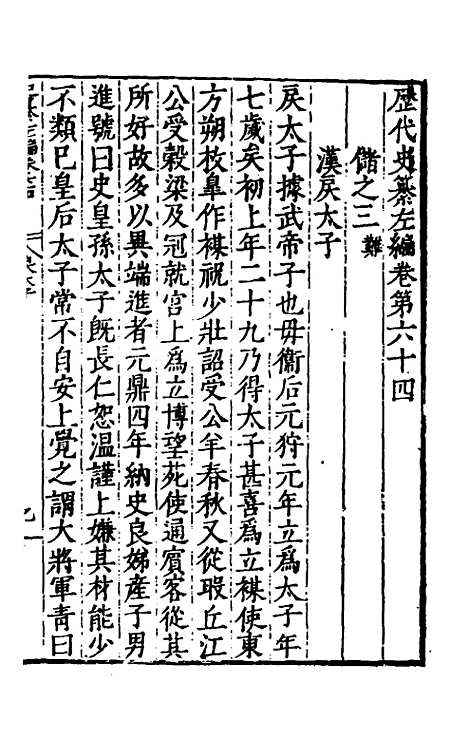 歷代史纂左編卷第六十四
儲之三難
漢戾太子
戾太子據武帝子也毋衞后元狩元年立爲太子年
七歲矣初上年二十九乃得太子甚喜爲立禖使東
方朔枚臯作禖祝少壯詔受公羊春秋又從瑕丘江
公受穀梁及冠就宮上爲立博望苑使通賓客從其
所好故多以異端進者元鼎四年納史良娣產子男
進號曰史皇孫太子旣長仁恕温謹上嫌其材能少
不類巳皇后太子常不自安上覺之謂大將軍青曰